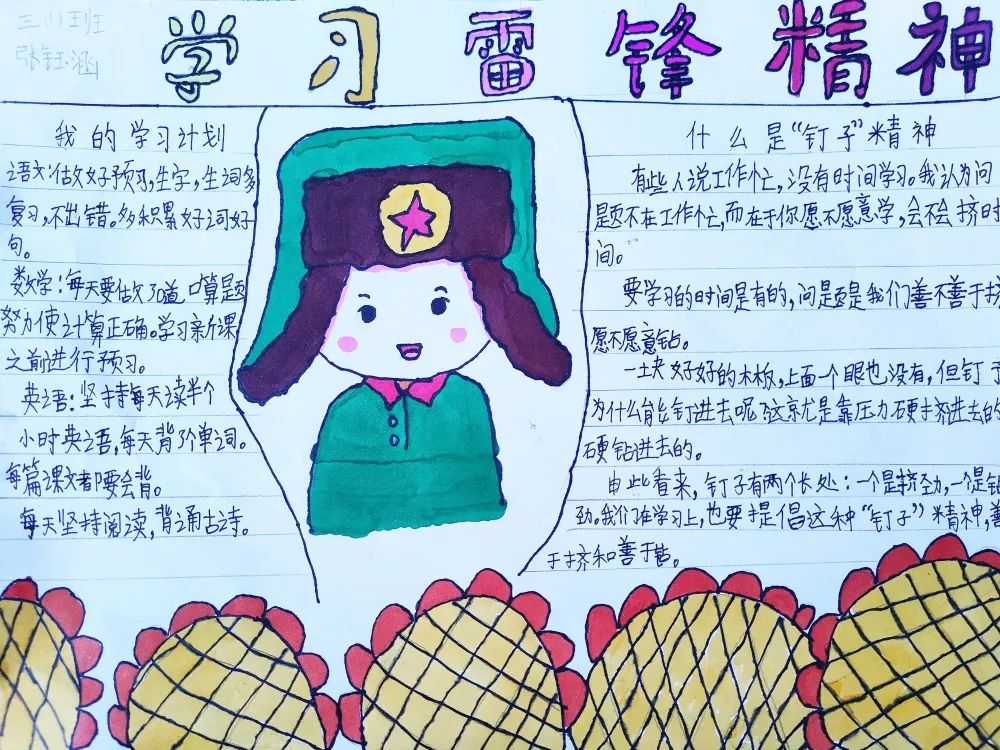 三(1)班
张钰涵
学习雷锋精神
我的学习计划
语文:做好预习,生字,生词多
复习,不出错。多积累好词好
句。
数学:每天要做30道口算题
努力使计算正确。学习新课
之前进行预习。
英语:坚持每天读半个
小时英语,每天背3个单词。
每篇课文都要会背。
每天坚持阅读,背诵古诗。
什么是“钉子”精神
有些人说工作忙,没有时间学习。我认为问
题不在工作忙,而在于你愿不愿意学,会不会挤时
间。
要学习的时间是有的,问题是我们善不善于挤
愿不愿意钻。
一块好好的木板,上面一个眼也没有,但钉子
为什么能钉进去呢?这就是靠压力硬挤进去的
硬钻进去的。
由此看来,钉子有两个长处:一个是挤劲,一个是钻
劲。我们在学习上,也要提倡这种“钉子”精神,善
于挤和善于钻。